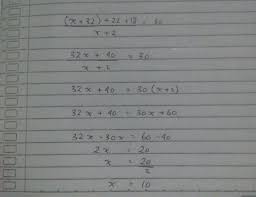 (x × 32) + 22 + 18 = 30
x + 2
32x + 40 = 30
x + 2
32x + 40 = 30 (x + 2)
32x + 40 = 30x + 60
32x - 30x = 60 - 40
2x = 20
x = 20
2
x = 10